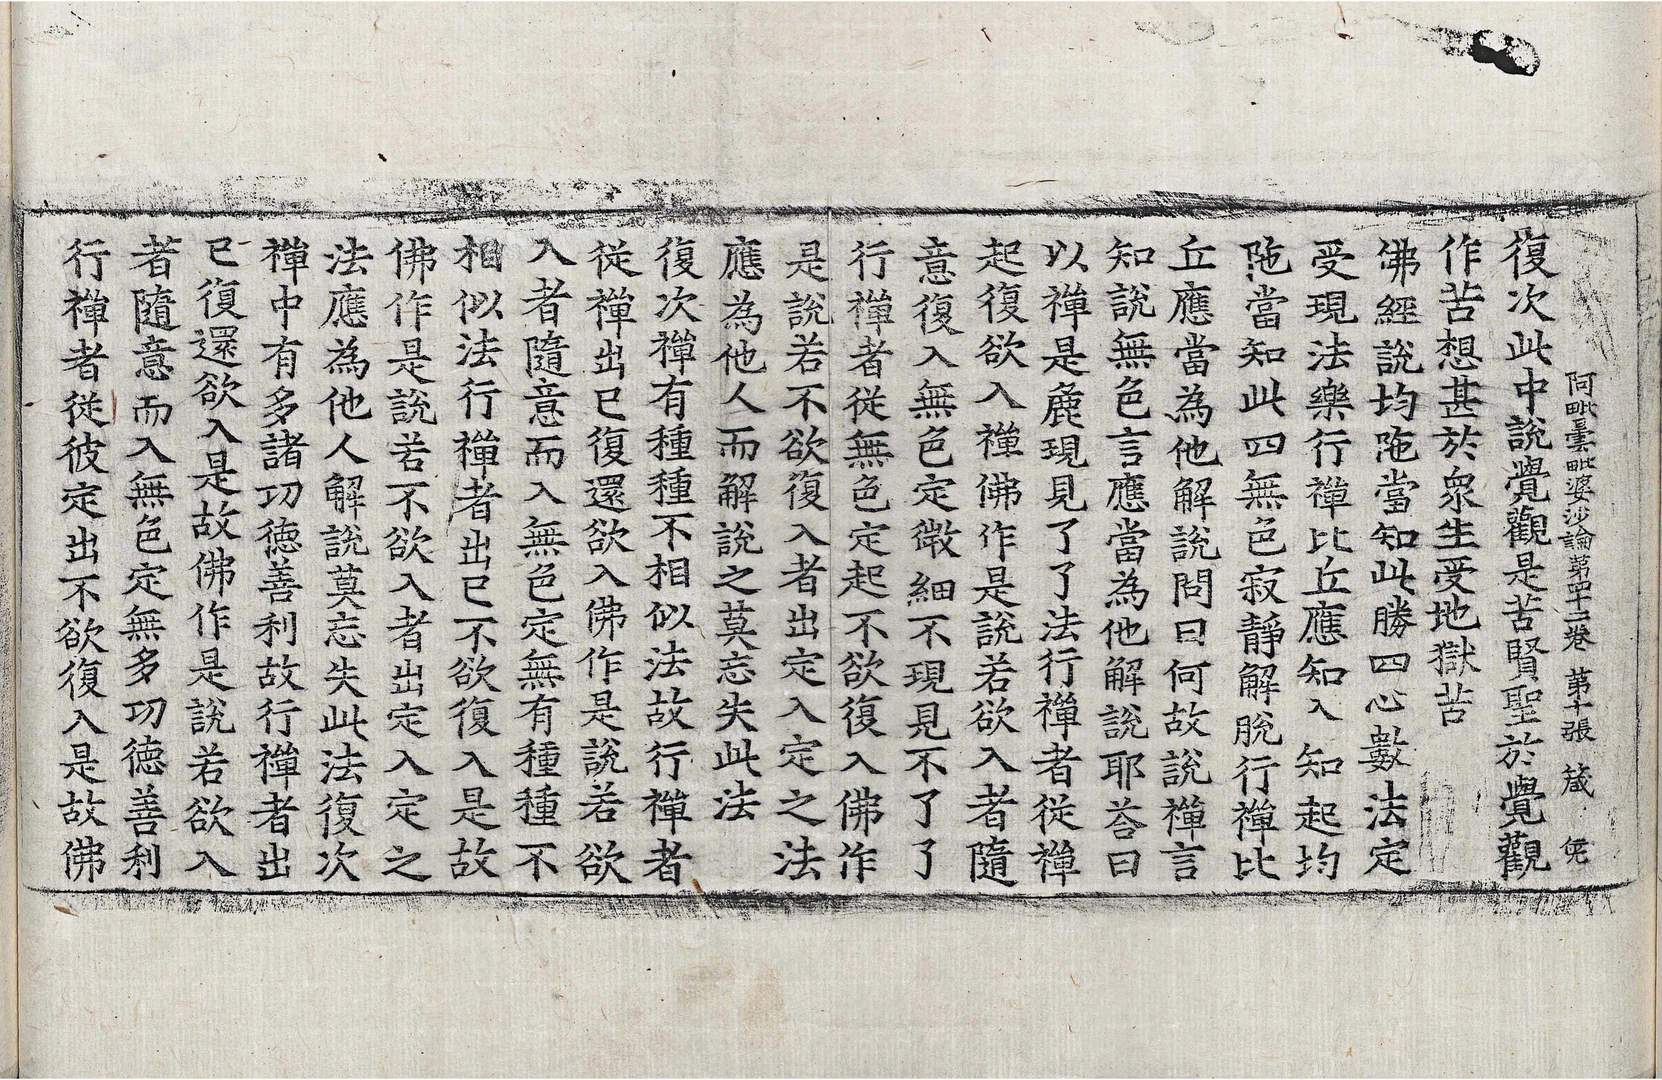 阿毗曇毗婆沙論第四十二卷 第十張 箴
復次此中說覺觀是苦賢聖於覺觀
作苦想甚於衆生受地獄苦
佛經說均陁當知此勝四心數法定
受現法樂行禪比丘應知入知起均
陁當知此四無色寂靜解脫行禪比
丘應當為他解說問曰何故說禪言
知說無色言應當為他解說耶荅曰
以禪是麁現見了了法行禪者從禪
起復欲入禪佛作是說若欲入者隨
意復入無色定微細不現見不了了
行禪者從無色定起不欲復入佛作
是說若不欲復入者出定入定之法
應為他人而解說之莫忘失此法
復次禪有種種不相似法故行禪者
從禪出已復還欲入佛作是說若欲
入者隨意而入無色定無有種種不
相似法行禪者出已不欲復入是故
佛作是說若不欲入者出定入定之
法應為他人解說莫忘失此法復次
禪中有多諸功德善利故行禪者出
已復還欲入是故佛作是說若欲入
者隨意而入無色定無多功德善利
行禪者從彼定出不欲復入是故佛